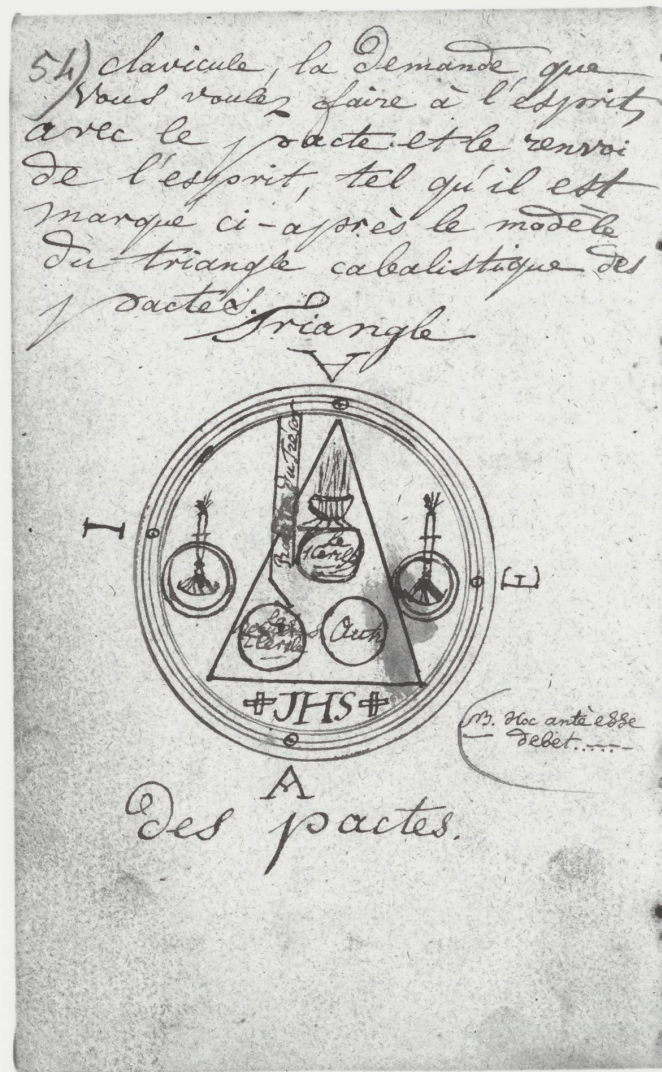 54) clavicule, la demande que
vous voulez faire à l'esprit,
avec le pacte et le renvoi
de l'esprit, tel qu'il est
marqué ci-après le modèle
du triangle cabalistique des
pactes.
Triangle
A
du Trésor
I
E
Le
JHS
NB. Hoc antè esse
debet.....
A
des pactes.